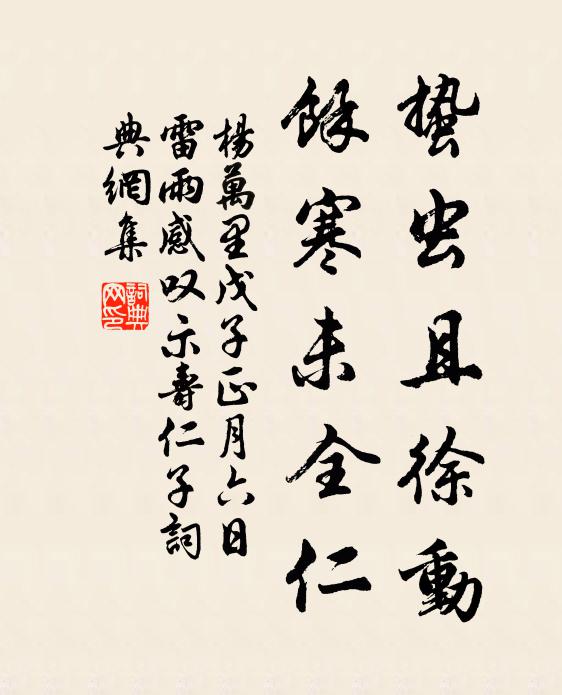 蟄虫且徐動
餘寒未全仁
楊萬里戊子正月六日
雷雨感叹示壽仁子詞
典網集
詞典网印